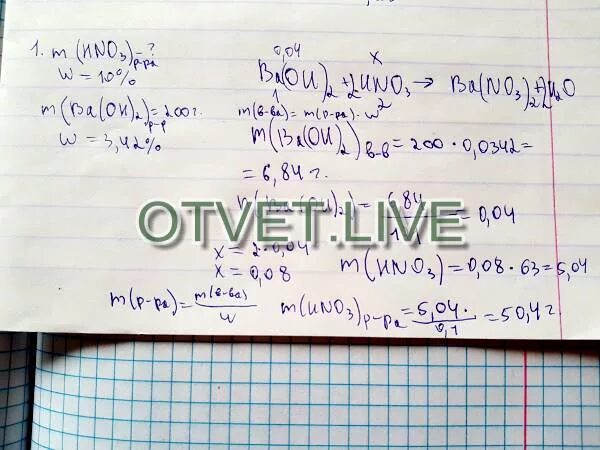 1. m (HNO3)р-ра - ?
W = 10%
m (Ba(OH)2)р-р = 200г.
W = 3,42%
0,04 x
Ba(OH)2 + 2HNO3 → Ba(NO3)2 + 2H2O
1 2
m(в-ва) = m(р-ра) · w
m(Ba(OH)2)в-в = 200 · 0,0342 =
= 6,84 г.
n(Ba(OH)2) = 6,84 / = 0,04
OTVET.LIVE
x = 2 · 0,04
x = 0,08
m(HNO3) = 0,08 · 63 = 5,04
m(р-ра) = m(в-ва) / w
m(HNO3)р-ра = 5,04 / 0,1 = 50,4 г